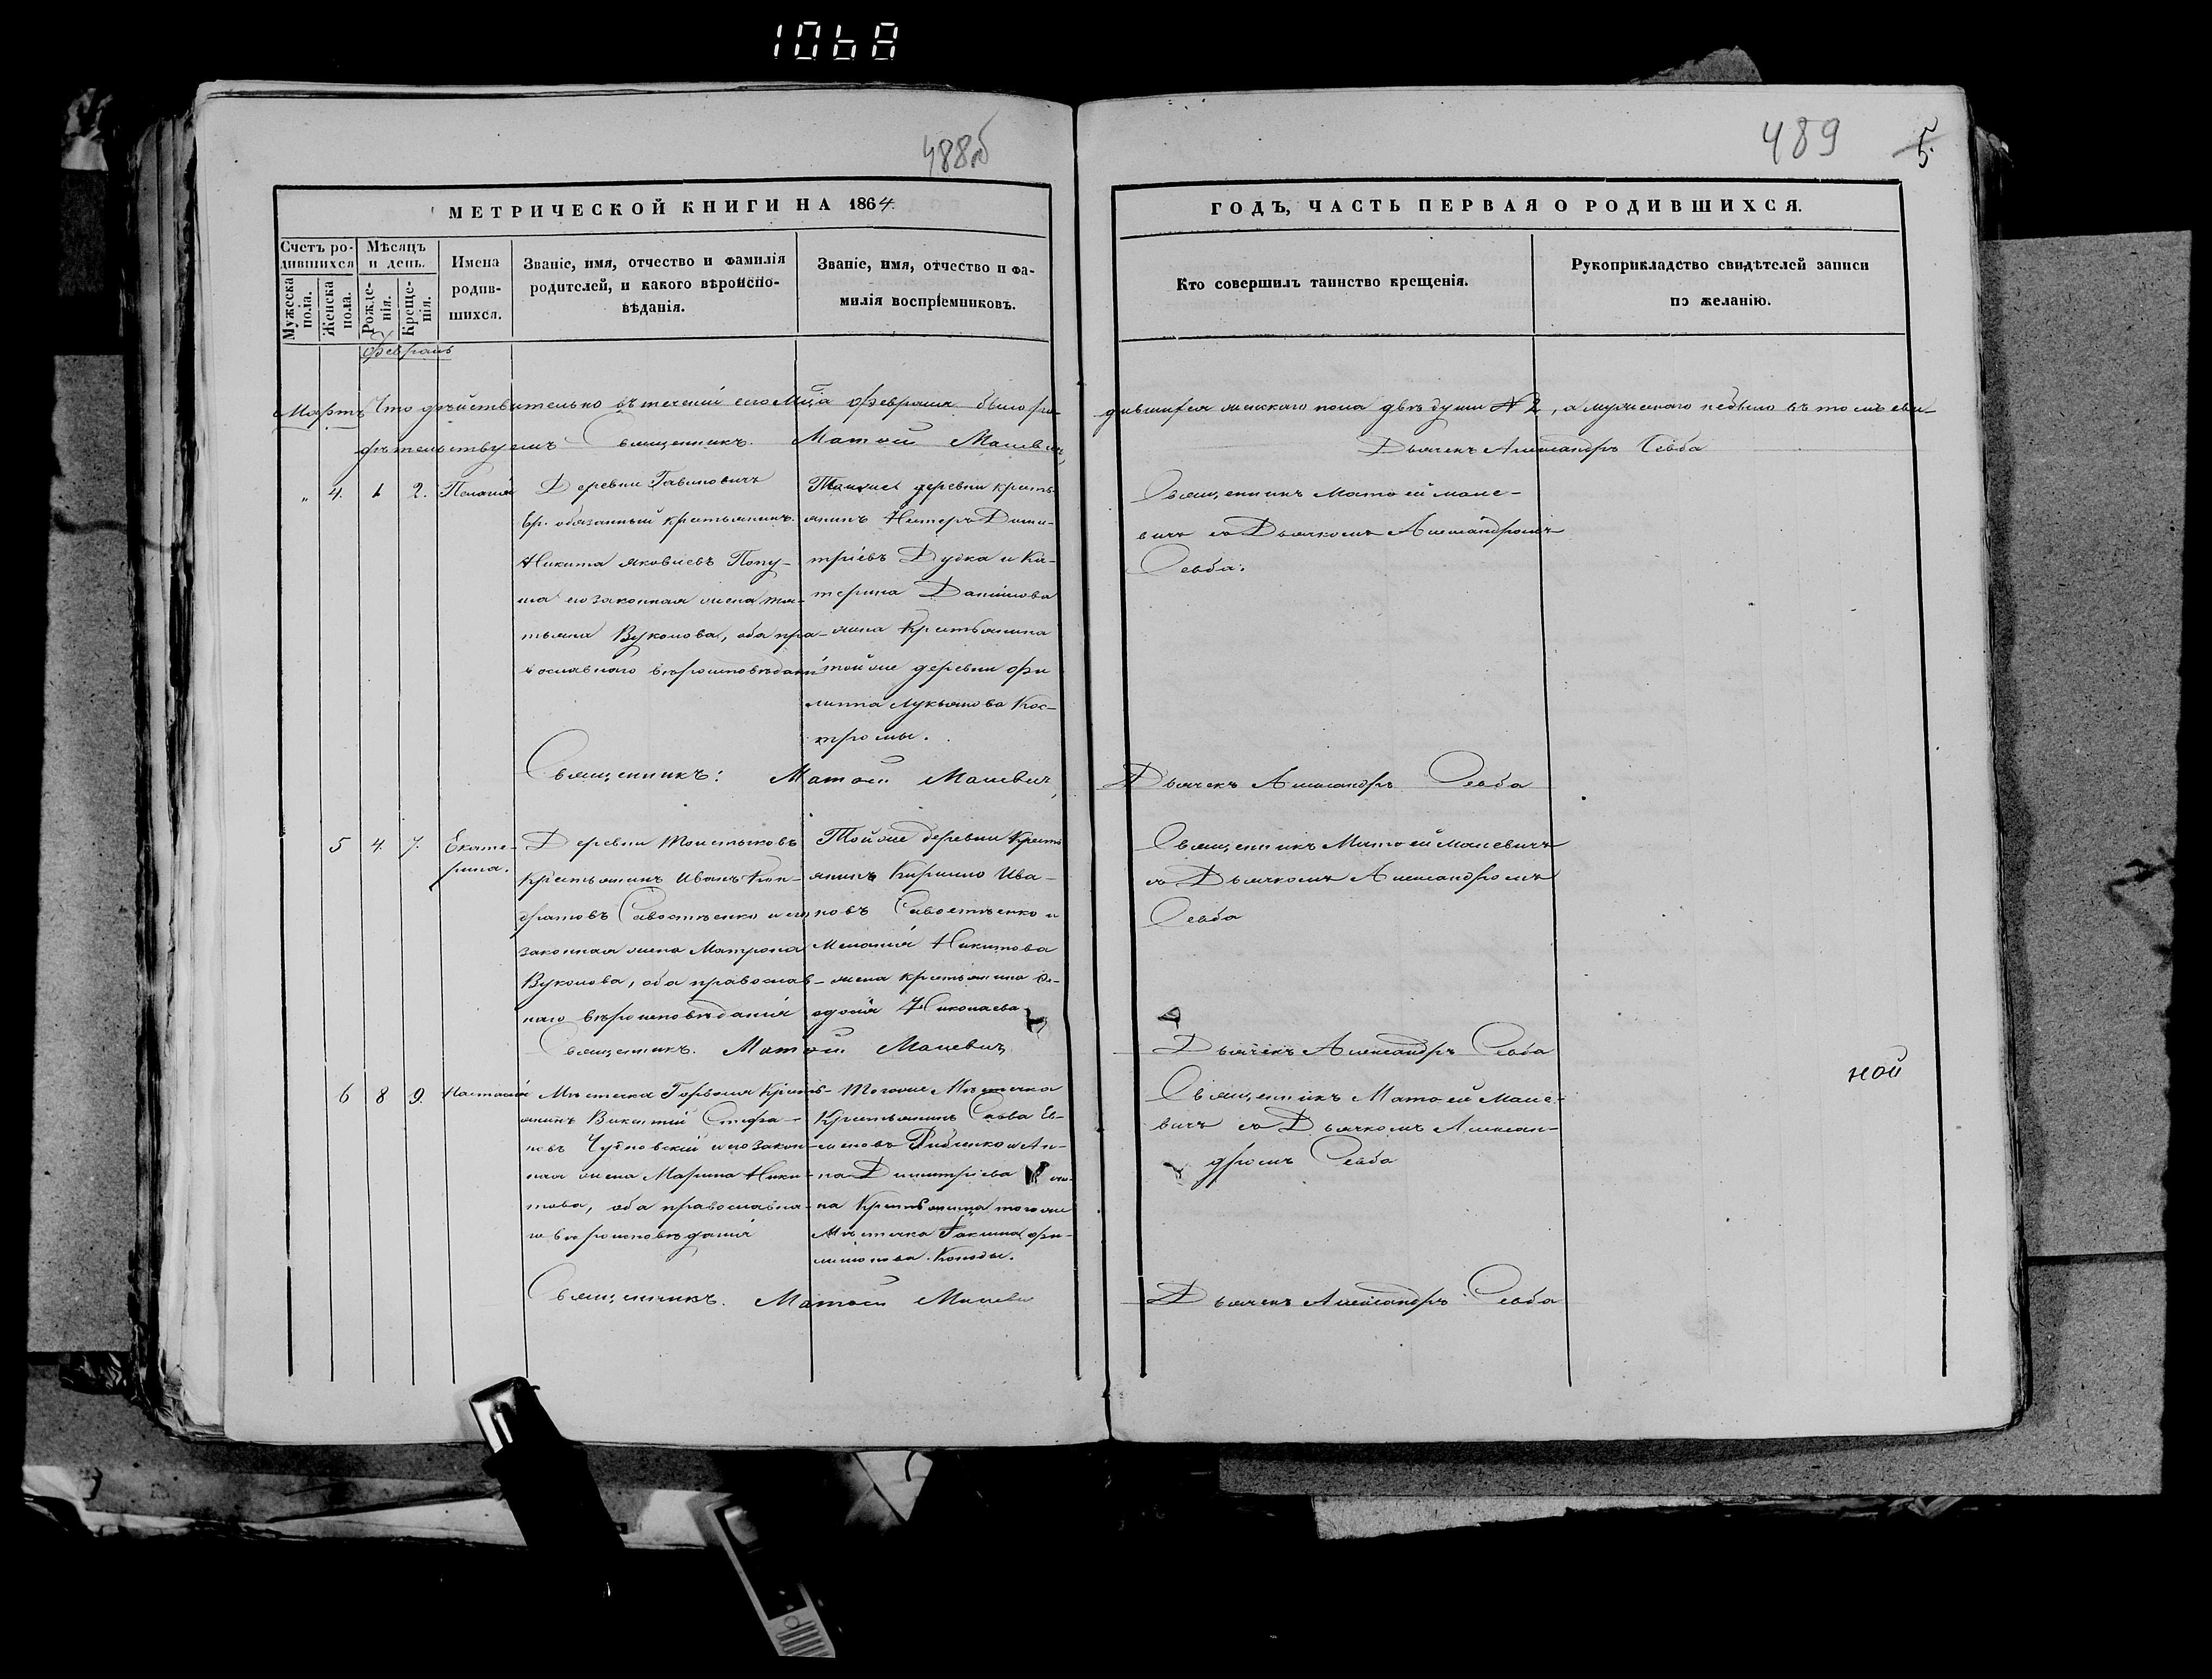 1068
488об
489
5.
МЕТРИЧЕСКОЙ КНИГИ НА 1864.
ГОДЪ, ЧАСТЬ ПЕРВАЯ О РОДИВШИХСЯ.
Счетъ ро-
дившихся
Мужеска
пола.
Женска
пола.
Мѣсяцъ
и день.
Рожде-
нія.
Креще-
нія.
Имена
родив-
шихся.
Званіе, имя, отчество и фамилія
родителей, и какого вѣроиспо-
вѣданія.
Званіе, имя, отчество и фа-
милія воспріемниковъ.
Кто совершилъ таинство крещенія.
Рукоприкладство свидѣтелей записи
по желанію.
Февраль
Что дѣйствительно въ теченіи сего Мца Февраля было ро
дившихся женскаго пола двѣ души № 2, а мужескаго небыло въ томъ сви-
Мартъ
дѣтельствуемъ Священникъ. Матѳей Малевич,
Дьячекъ Александръ Севба
" 4. 1 2. Пелагія
Деревни Гавиновичъ
вр. обязанный крестьянинъ
Никита Яковлевъ Попу-
ша его законная жена Та-
тьяна Вуколова, оба пра-
вославнаго вѣроисповѣданія
Тойже деревни кресть-
янинъ Несторъ Дими-
тріевъ Дудка и Ка-
терина Данилова
жена Крестьянина
тойже деревни Фи
липпа Лукьянова Кос-
тромы.
Священникъ Матѳей Мале-
вичъ съ Дьячкомъ Александромъ
Севба.
Священникъ: Матѳей Малевич,
Дьячекъ Александръ Севба
5 4. 7. Екате-
рина.
Деревни Толстыковъ
Крестьянинъ Иванъ Кон-
дратовъ Савостѣенко и его
законная жена Матрона
Вуколова, оба православ-
наго вѣроисповѣданія
Тойже деревни Кресть
янинъ Кирилло Ива-
новъ Савостѣенко и
Меланія Никитова
жена крестьянина Ѳе-
одосія Николаева
Священникъ Матѳей Малевичъ
съ Дьячкомъ Александромъ
Севба
Священникъ. Матѳей Малевич,
Дьячекъ Александръ Севба
ной
6 8 9. Настасія
Мѣстечка Горволя Кресть-
янинъ Викентій Стефа-
новъ Чудновскій и его закон-
ная жена Марина Ники-
това, оба православна-
го вѣроисповѣданія
Тогоже Мѣстечка
Крестьянинъ Савва Ев-
меновъ Рябченко и Ан-
на Димитріева же-
на Крестьянина тогоже
Мѣстечка Іакима Фи-
лимонова Колоды.
Священникъ Матѳей Мале-
вичъ съ Дьячкомъ Алексан-
дромъ Севба
Священникъ. Матѳей Малеви
Дьячекъ Александръ Севба